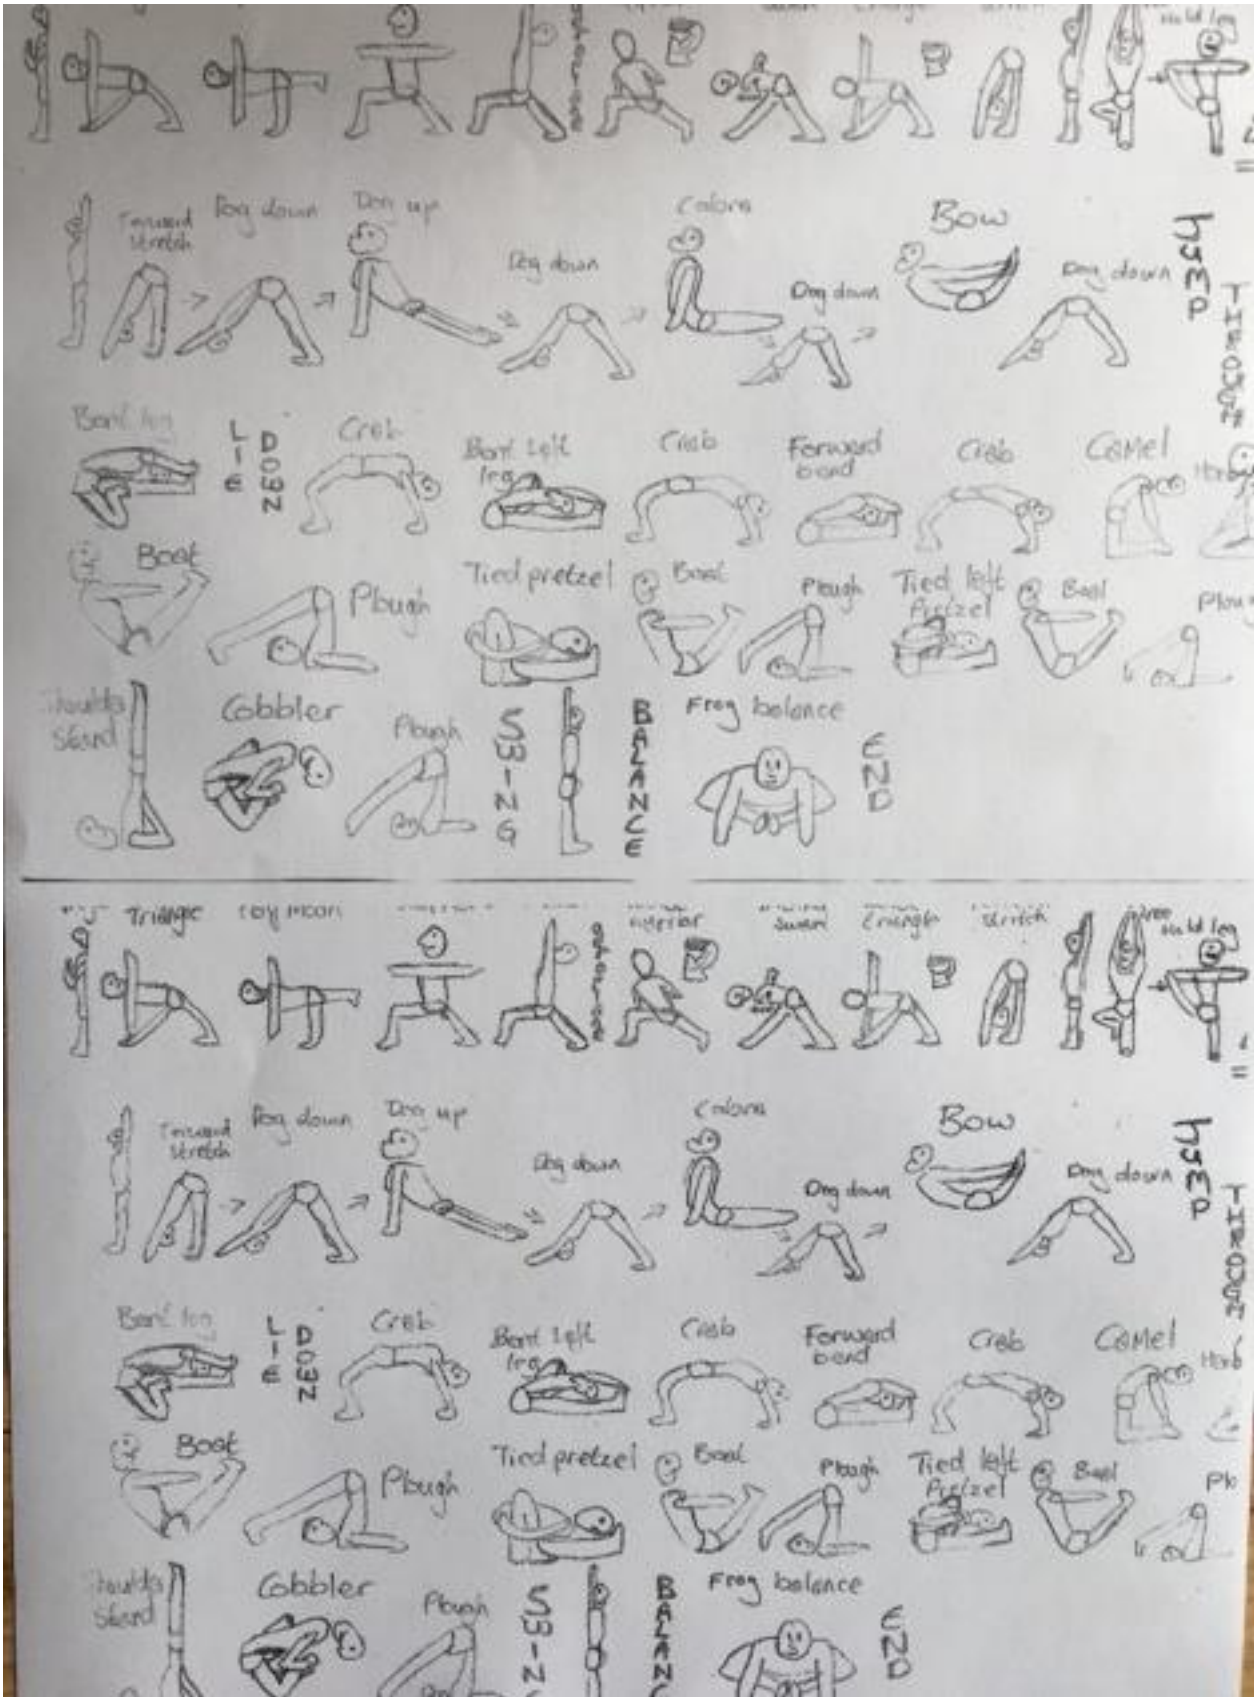 Hold leg
Forward stretch
Dog down
Dog up
Dog down
Cobra
Dog down
Bow
Dog down
JUMP
THROUGH
Bent leg
LIE
DOWN
Crab
Bent left leg
Crab
Forward bend
Crab
Camel
Boat
Plough
Tied pretzel
Boat
Plough
Tied left Pretzel
Boat
Plou
Shoulder Stand
Cobbler
Plough
SWING
BALANCE
Frog balance
END
Triangle
Moon
warrior
Swan
Triangle
Stretch
Tree
Hold leg
Forward stretch
Dog down
Dog up
Dog down
Cobra
Dog down
Bow
Dog down
JUMP
THROUGH
Bent leg
LIE
DOWN
Crab
Bent left leg
Crab
Forward bend
Crab
Camel
Boat
Plough
Tied pretzel
Boat
Plough
Tied left Pretzel
Boat
Plo
Shoulder Stand
Cobbler
Plough
SWIN
BALAN
Frog balance
END